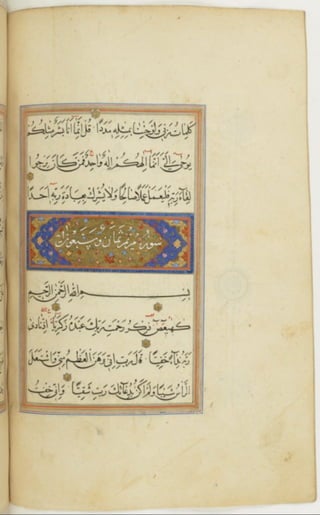 كلمات ربي ولو جئنا بمثله مددا قل إنما أنا بشر مثلكم
يوحى إلي أنما إلهكم إله واحد فمن كان يرجوا
لقاء ربه فليعمل عملا صالحا ولا يشرك بعبادة ربه أحدا
سورة مريم ثمان وتسعون
بسم الله الرحمن الرحيم
كهيعص ذكر رحمت ربك عبده زكريا إذ نادى
ربه نداء خفيا قال رب إني وهن العظم مني واشتعل
الرأس شيبا ولم أكن بدعائك رب شقيا وإني خفت